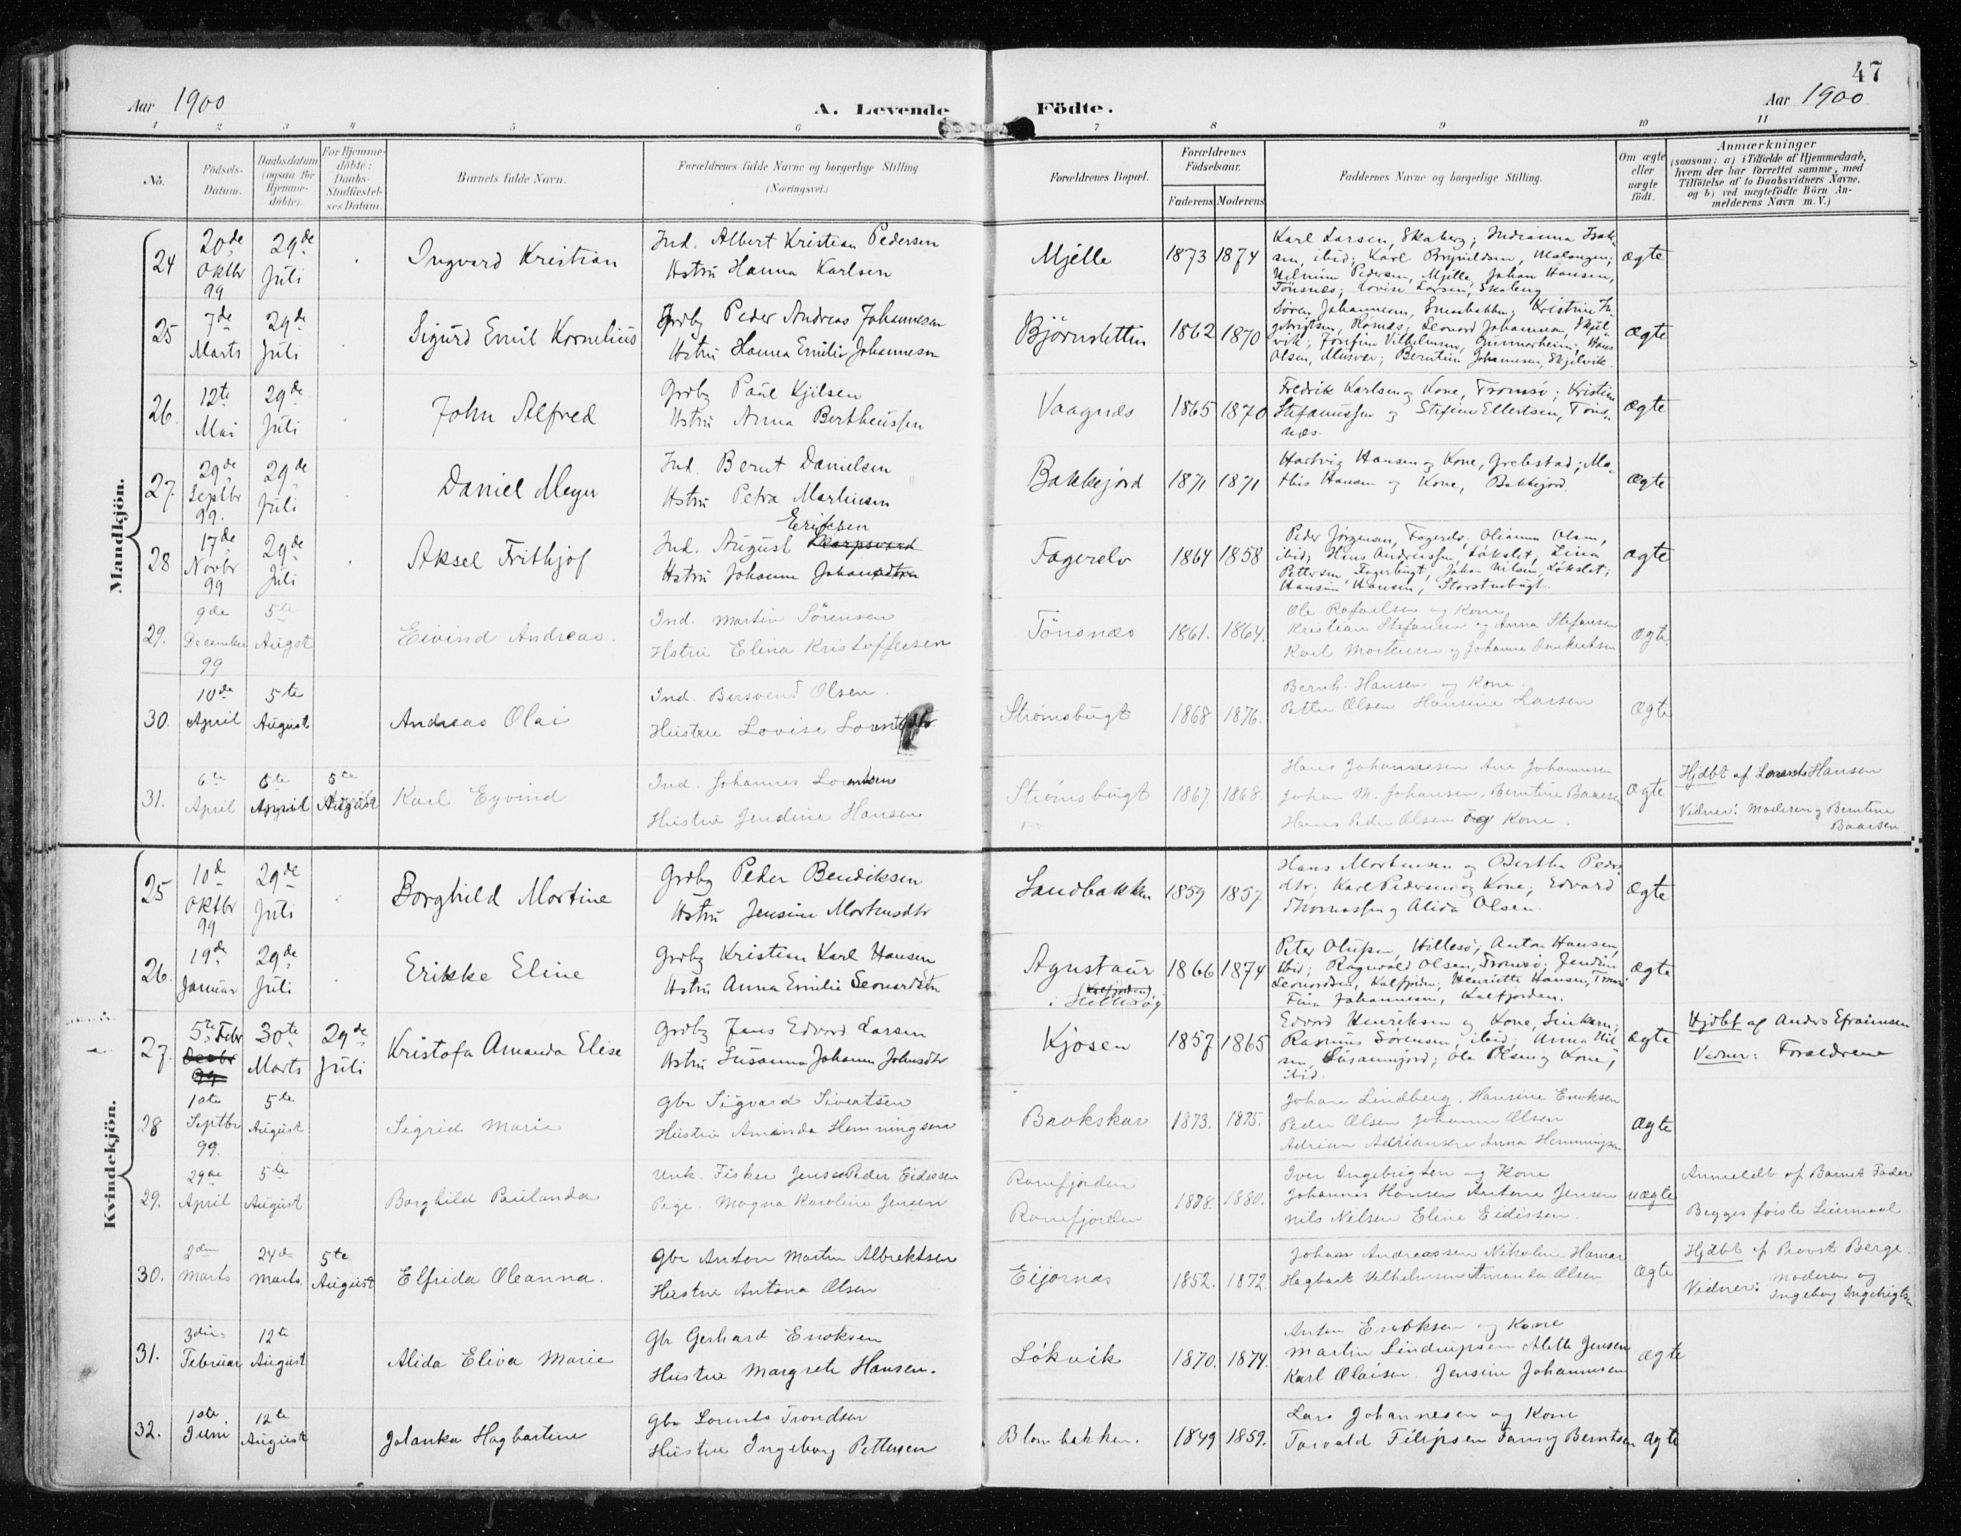 47
Aar 1900
A. Levende Födte.
Aar 1900
1 2 3 4 5 6 7 8 9 10 11
No.
Födsels-Datum.
Daabsdatum (ogsaa for Hjemme-döbte).
For Hjemme-döbte: Daabs-Stadfæstel-ses Datum.
Barnets fulde Navn.
Forældrenes fulde Navne og borgerlige Stilling
(Næringsvei.)
Forældrenes Bopæl.
Forældrenes Födselsaar.
Faderens Moderens
Faddernes Navne og borgerlige Stilling.
Om ægte eller uægte født.
Anmærkninger
(saasom: a) i Tilfælde af Hjemmedaab,
hvem der har forrettet samme, med
Tilföielse af to Daabsvidners Navne,
og b) ved uægtefödte Börn An-
melderens Navn m. V.)
Mandkjön.
24 20de Oktbr 99 29de Juli Ingvard Kristian
Ind. Albert Kristian Pedersen
Hstru Hanna Karlsen
Mjelle 1873 1874
Karl Larsen, Skaberg; Indianna Isak-
sen, ibid; Karl Brynildsen, Malangen;
Pedersen, Mjelle, Johan Hansen,
Tönsnæs; Lovise Larsen, Skaberg
ægte
25 7de Marts 29de Juli Sigurd Emil Kornelius
Grdbr Peder Andreas Johannesen
Hstru Hanna Emilie Johannesen
Björnslettin 1862 1870
Sören Johannesen, Kristine
Leonard Johannesen, Skjel-
vik; Josefine Vilhelmsen, Gunnarheim; Hans
Olsen, Musvær; Berntine Johannesen, Skjelvik.
ægte
26. 12te Mai 29de Juli John Alfred
Grdbr Paul Kjilsen
Hstru Anna Bertheussen
Vaagnæs 1865 1870
Fredrik Karlsen og Kone, Tromsø; Kristian
Stefanussen og Stefine Ellertsen, Töns-
næs.
ægte
27. 29de Septbr 99. 29de Juli Daniel Meyer
Ind. Bernt Danielsen
Hstru Petra Martinsen
Bakkejord 1871 1871
Hartvig Hansen og Kone, Grebstad; Ma-
this Hansen og Kone, Bakkejord.
ægte
28 17de Novbr 99 29de Juli Aksel Frithjof
Eriksen
Ind. August
Hstru Johanna
Fagerelv 1864 1858
Peder Jørgensen, Fagerelv, Olianna Olsen,
ibid; Hans Andreassen Lökslet, Lina
Pettersen Fagerbugt, Johan Nilsen, Lökslet;
Hansine Hansen, Storstenbugt.
ægte
29. 9de December 99 5te Augst Eivind Andreas.
Ind. Martin Sörensen
Hstru Elina Kristoffersen
Tönsnæs 1861. 1864.
Ole Rafaelsen og Kone
Kristian Stefansen og Anna Stefansen
Karl Mortensen og Johanna
ægte
30. 10de April 5te August Andreas Olai
Ind. Bersvend Olsen.
Hustru Lovise
Strømsbugt 1868 1876.
Bernh. Hansen og Kone.
Petter Olsen Hansine Larsen
ægte
31. 6te April 6te April 5te August Karl Eyvind
Ind. Johannes Lorentsen
Hustru Jendine Hansen
Strømsbugt 1867. 1868.
Hans Johannesen Ane Johannesen
Johan M. Johansen, Berntine Baarsen
Hans Peder Olsen og Kone.
ægte
Hjdbt af Lorents Hansen
Vidner: Moderen og Berntine
Baarsen
Kvindekjön.
25 10de Oktbr 99 29de Juli Borghild Martine
Grdbr Peder Bendiksen
Hstru Jensine Mortensdtr
Sandbakken 1859 1857
Hans Mortensen og Bertha Peders-
dtr; Karl Pedersen og Kone; Edvard
Thomassen og Alida Olsen.
ægte
26. 19de Januar 29de Juli Erikke Eline
Grdbr Kristian Karl Hansen
Hstru Anna Emilie Leonardsen
1866 1874
Peter Olufsen, Hillesø; Anton Hansen,
ibid; Ragnvald Olsen, Tromsø; Jendine
Leonardsen, Kalfjorden; Henriette Hansen, Troms-
Fina Johannesen, Kalfjorden.
ægte
27. 5te Febr 30te Marts 29de Juli Kristofa Amanda Elise
Grdbr Jens Edvard Larsen
Hstru Susanna Johanna Johnsdtr
Kjosen 1857 1865
Edvard Henriksen og Kone,
Rasmus Sörensen, ibid; Anna Nil-
sen, Ole Olsen og Kone,
ibid.
ægte
Hjdbt af Anders Efraimsen
Vidner: Forældrene
28 10de Septbr 99. 5te August Sigrid Marie
Gbr Sigvard Sivertsen
Hustru Amanda Hemmingsen
Brokskar 1873. 1875.
Johan Lindberg. Hansine Enoksen
Peder Olsen Johanna Olsen
Adrian Adriansen Anna Hemmingsen
ægte
29. 29de April 5te August Borghild Paulanda
Unk. Fisker Jens Peder Eidissen
Pige. Magna Karoline Jensen
Ranefjorden
Ranefjorden
1878. 1880.
Iver Ingebrigtsen og Kone
Johannes Hansen Antona Jensen
Nils Nilsen Eline Eidissen.
uægte
Anmeldt af Barnets Fader
Begges første Leiermaal
30. Marts 24de Marts. 5te August Elfrida Oleanna.
Gbr Anton Martin Albrektsen
Hustru Antona Olsen
1852. 1872.
Johan Andreassen Nikoline Hansen
Hagbart Vilhelmsen Amanda Olsen
ægte
Hjdbt af Provst Berge.
Vidner: Moderen og
Ingeborg Ingebrigtsen
31. 3die Februar 12te August Alida Eliva Marie
Gbr Gerhard Enoksen
Hustru Margrete Hansen.
Lökvik 1870. 1874.
Anton Enoksen og Kone
Martin Lindrupsen Alette Jensen
Karl Olaisen. Jensine Johannesen
ægte
32. 10de Juni 12te August Jolanka Hagbartine
Gbr Lorents Trondsen
Hustru Ingeborg Pettersen
Blombakken. 1849 1859.
Lars Johannesen og Kone
Torvald Filipsen Fanny Berntsen
ægte